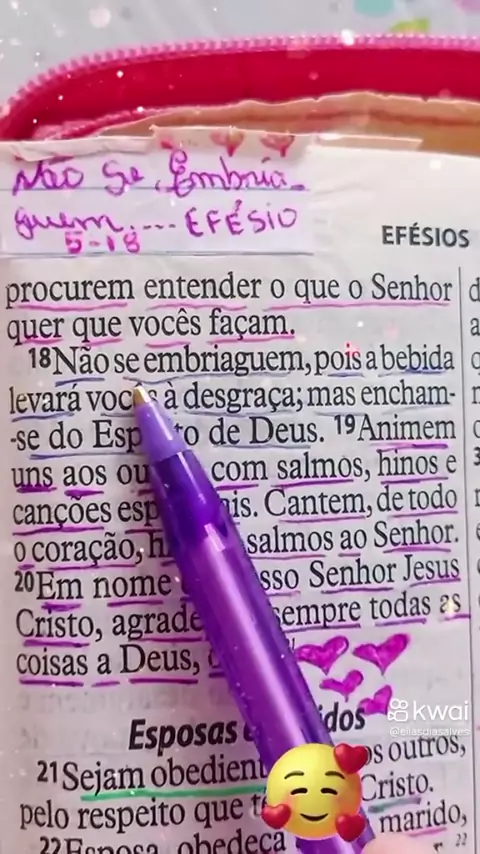 Não Se Embria-
guem.... EFÉSIO
5-18
EFÉSIOS
procurem entender o que o Senhor
quer que vocês façam.
18Não se embriaguem, pois a bebida
levará você à desgraça; mas encham-
-se do Esp to de Deus. 19Animem
uns aos ou com salmos, hinos e
canções esp is. Cantem, de todo
o coração, h salmos ao Senhor.
20Em nome sso Senhor Jesus
Cristo, agrade sempre todas as
coisas a Deus,
Esposas dos
21Sejam obedient os outros,
pelo respeito que t Cristo.
22Esposa, obedeça marido,
22
kwai
@eliasdiasalves